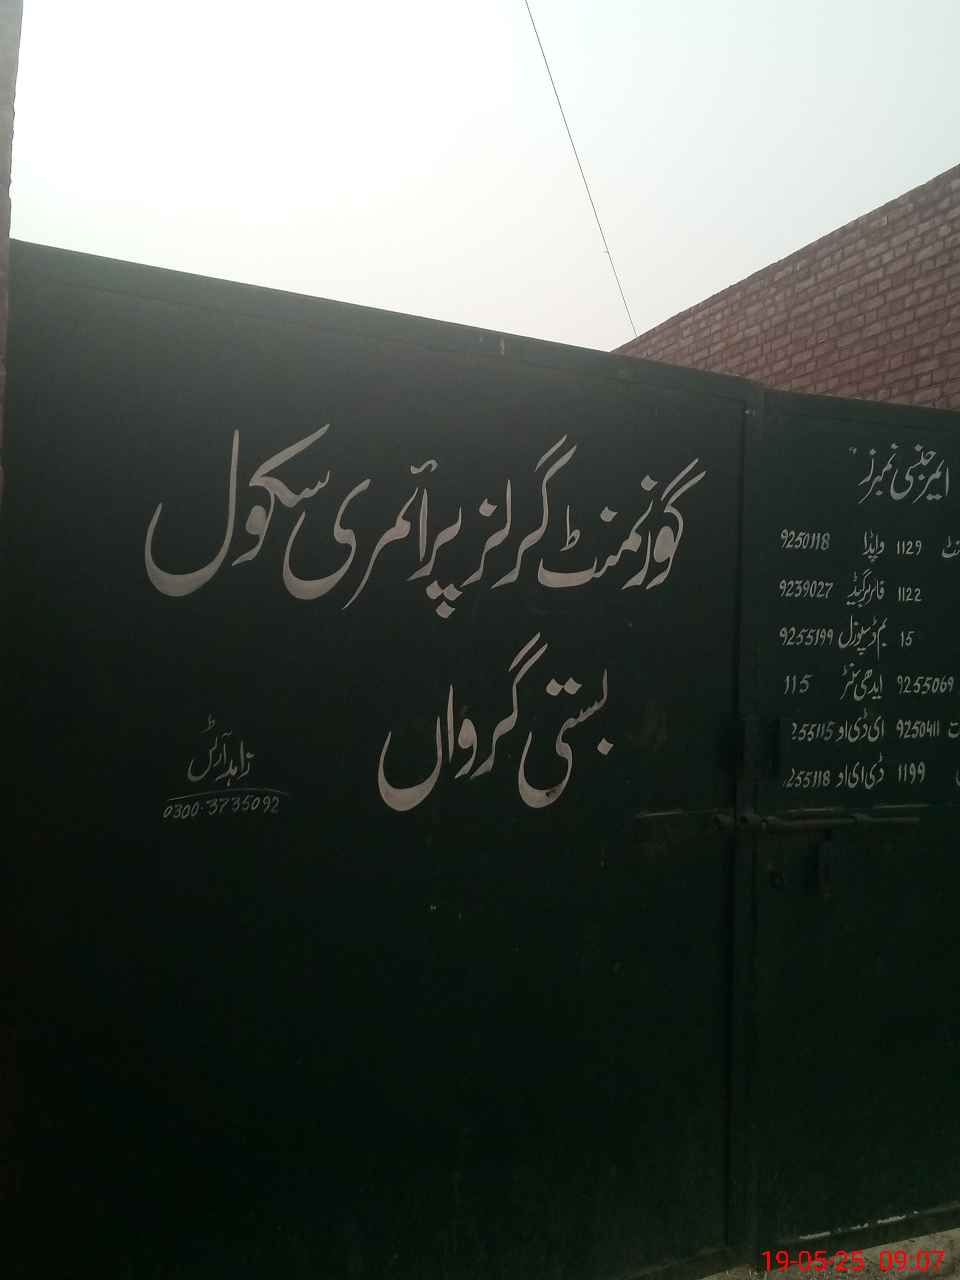 گورنمنٹ گرلز پرائمری سکول
بستی گرواں
زاہد آرٹس
0300-3735092
ایمرجنسی نمبرز
1129 واپڈا 9250118
1122 فائر بریگیڈ 9239027
15 بم ڈسپوزل 9255199
9255069 ایدھی سنٹر 115
9250411 ای ڈی او 255115
1199 ڈی ای او 255118
19-05-25 09:07